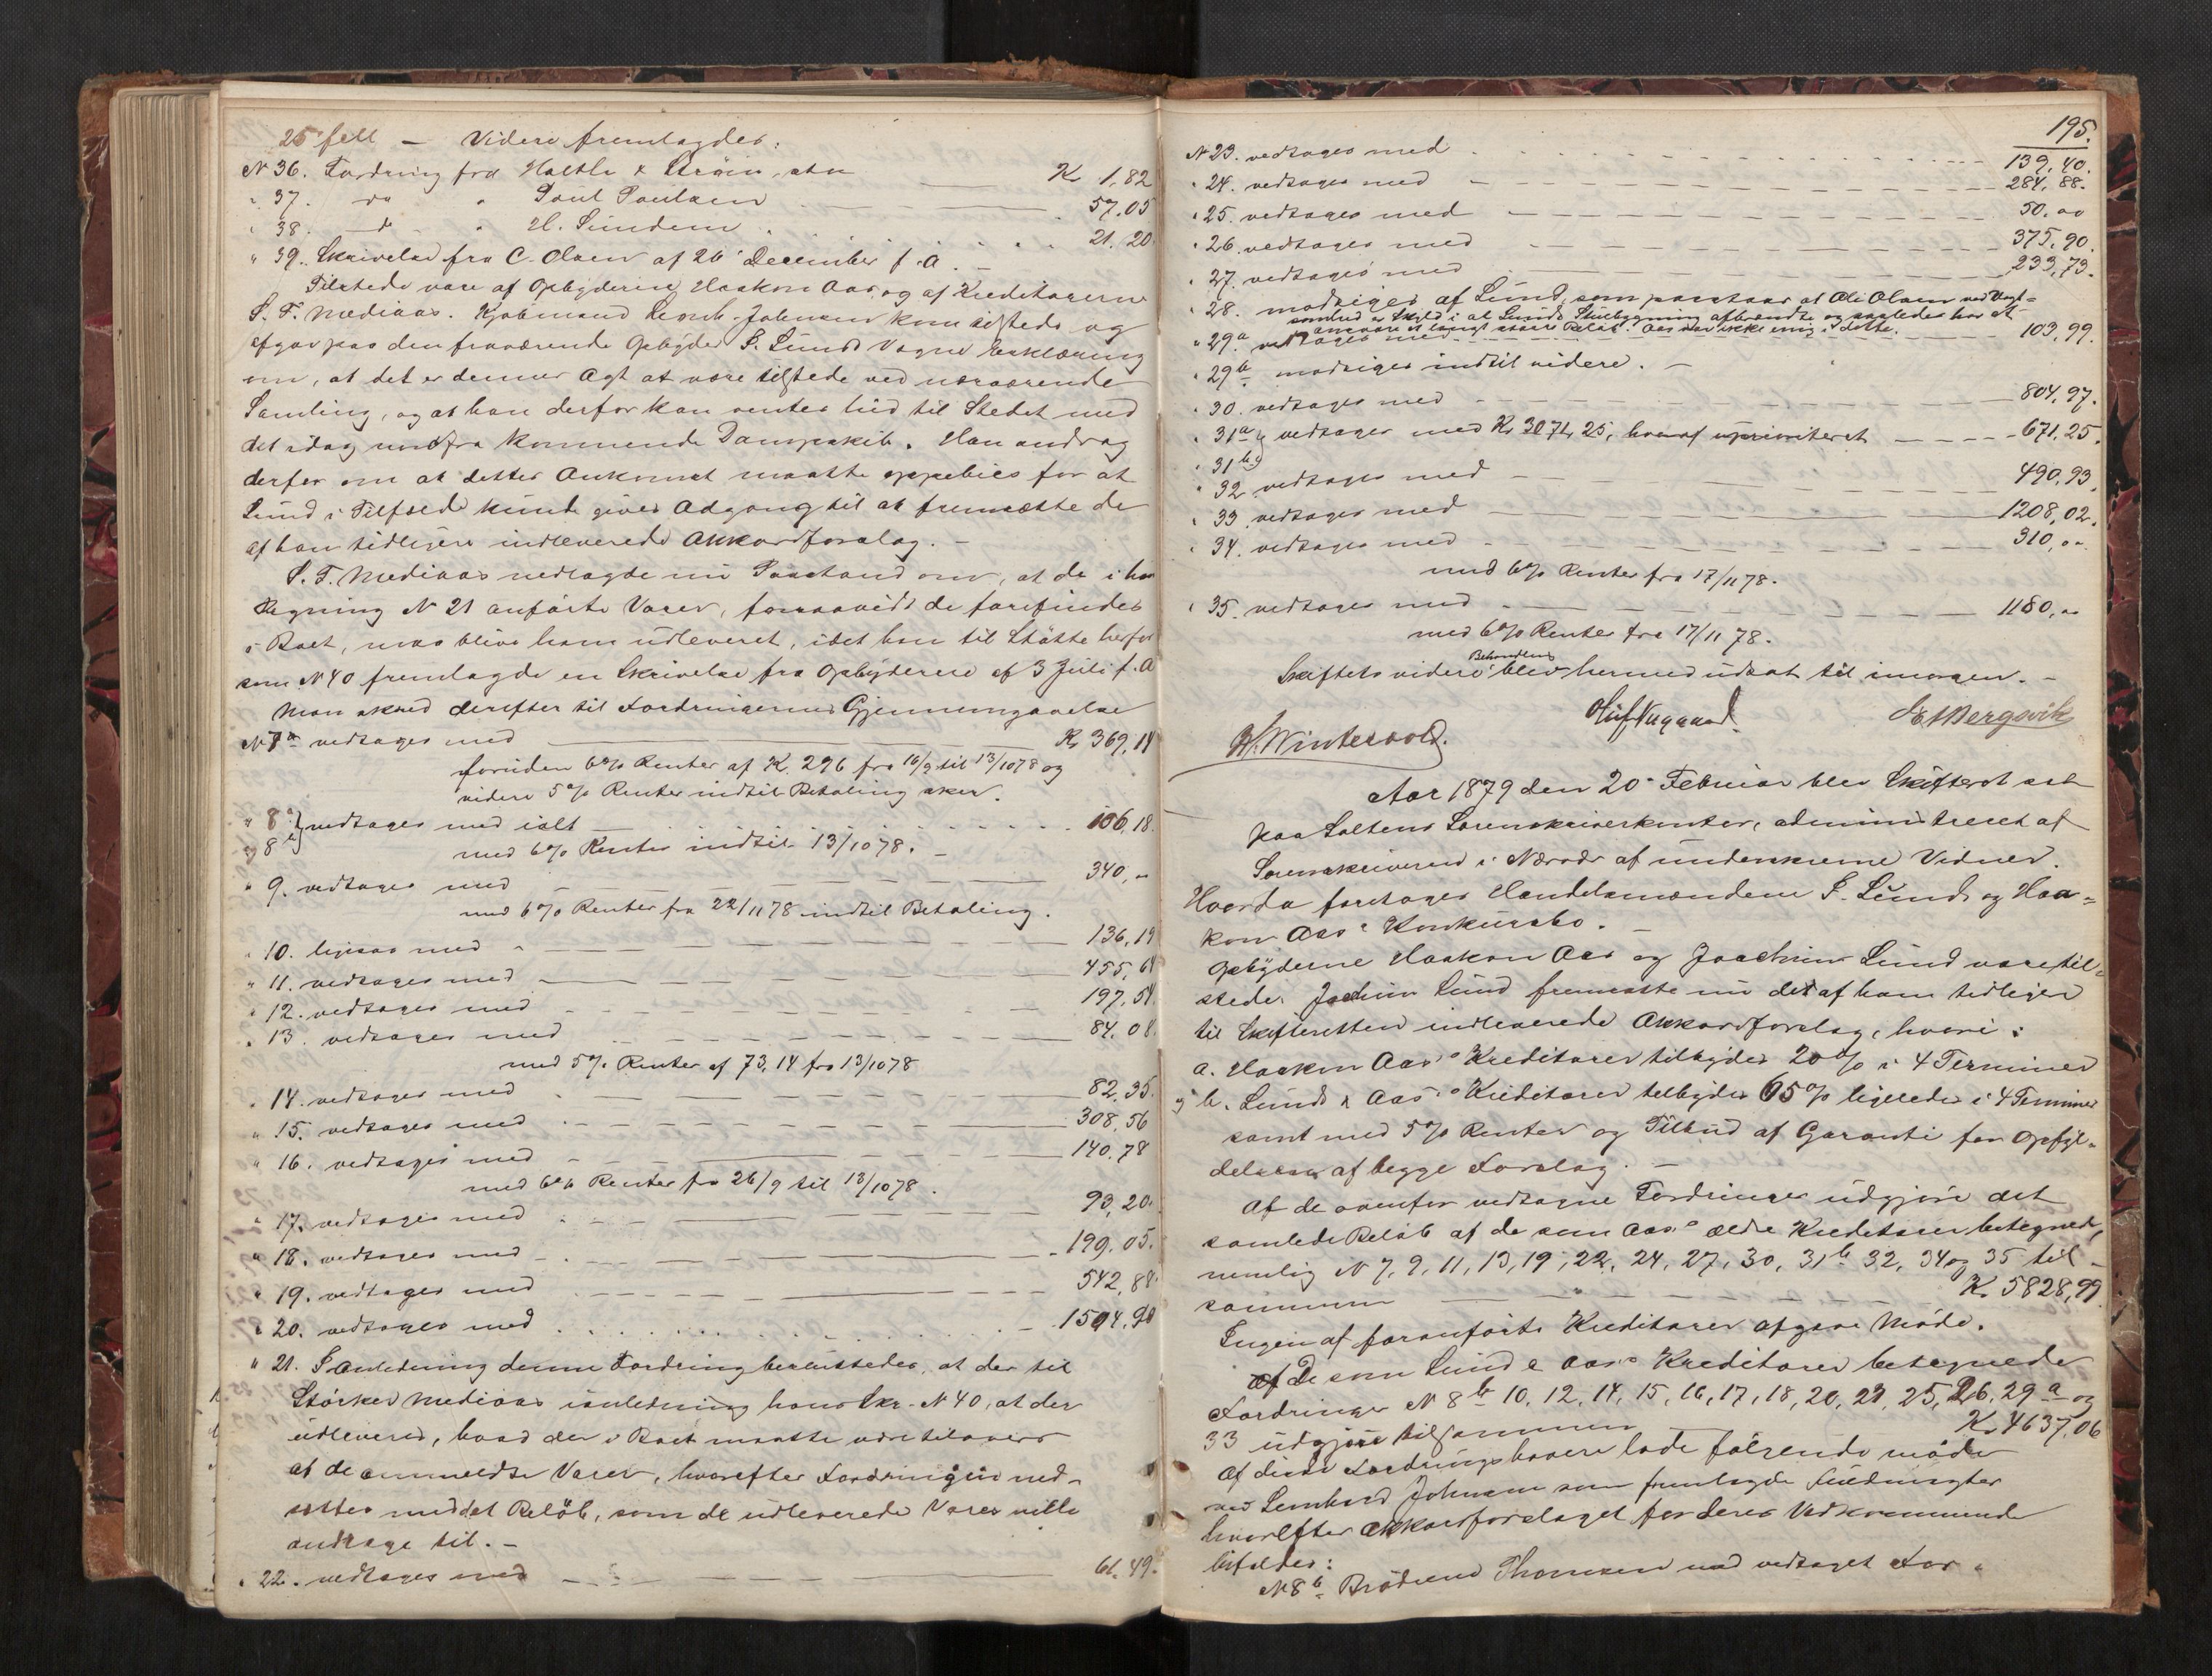 25' fell — Videre fremlagdes:
N 36. Fordring fra Holthe & Strøm, stor K 1,82
" 37. do " Poul Poulsen 57.05
" 38. do " H. Sundem 21.20
" 39. Skrivelse fra C. Olsen af 26' December f. A. —
Tilstede vare af Opbyderne Haakon Aas og af Kreditorerne
S. F. Mediaas. Kjøbmand Lernh. Johnsen kom tilstede og
afgav paa den fraværende Opbyder S. Lunds Vegne Erklæring
om, at det er dennes Agt at være tilstede ved nærværende
Samling, og at han derfor kan ventes hid til Stedet med
det idag nordfra kommende Dampskib. Han androg
derfor om at dettes Ankomst maatte oppebies for at
Lund i Tilfælde kunde gives Adgang til at fremsætte de
af ham tidligere indleverede Akkordforslag. —
S. F. Mediaas nedlagde nu Paastand om, at de i hans
Regning N 21 anførte Varer, forsaavidt de forefindes
i Boet, maa blive ham udleveret, idet han til Støtte herfor
som N 40 fremlagde en Skrivelse fra Opbyderne af 3 Juli f. A
Man skred derefter til Fordringernes Gjennemgaaelse
N 7 a vedtages med K. 369,14
foruden 6% Renter af K. 296 fra 16/9 til 13/10 78 og
videre 5% Renter indtil Betaling sker.
" 8 a } vedtages med ialt 106,18.
og 8 b } med 6% Renter indtil 13/10 78. —
" 9. vedtages med 340,"
med 6% Renter fra 22/11 78 indtil Betaling.
" 10. ligesaa med 136,19
" 11. vedtages med 455,64
" 12. vedtages med 197.54.
" 13. vedtages med 84.08.
med 5% Renter af 73,14 fra 13/10 78
" 14. vedtages med 82,35.
" 15. vedtages med 308,56
" 16. vedtages med 140.78
med 6% Renter fra 26/9 til 13/10 78.
" 17. vedtages med 93,20.
" 18. vedtages med 199.05.
" 19. vedtages med 542,88.
" 20. vedtages med 1504.90
" 21. I Anledning denne Fordring besluttedes, at der til
Størker Mediaas i anledning hans Skr. N 40, at der
udleveres, hvad der i Boet maatte være tilovers
af de anmeldte Varer, hvorefter Fordringen ned-
sættes med det Beløb, som de udleverede Varer ville
andrage til. —
" 22. vedtages med 61.49.
195.
N 23. vedtages med 139,40.
" 24. vedtages med 284,88.
" 25. vedtages med 50,00
" 26. vedtages med 375,90.
" 27. vedtages med 233,73.
" 28. modsiges af Lund, som paastaar at Ole Olsen ved Uagt-
somhed er Skyld i at Lunds Skubygning afbrændte og saaledes har at
ansvare et langt større Beløb. Aas var ikke enig i dette.
" 29 a vedtages med 103,99.
" 29 b modsiges indtil videre. —
" 30. vedtages med 804,97.
" 31 a og vedtages med K. 3071,25, hvoraf uprioriteret 671,25.
" 31 b }
" 32 vedtages med 490,93.
" 33. vedtages med 1208,02.
" 34. vedtages med 310,""
med 6% Renter fra 17/11 78.
" 35. vedtages med 1180,""
med 6% Renter fra 17/11 78.
Skiftets videre Behandling blev hermed udsat til imorgen. —
Oluf Nygaard. E Bergsvik
H. Wintervold.
Aar 1879 den 20' Februar blev Skifteret sat
paa Saltens Sorenskriverkontor, administreret af
Sorenskriveren i Nærvær af underskrevne Vidner.
Hvorda foretoges Handelsmændene S. Lunds og Haa-
kon Aas's Konkursbo. —
Opbyderne Haakon Aas og Joachim Lund vare til-
stede. Jochim Lund fremsatte nu det af ham tidligere
til Skifteretten indleverede Akkordforslag, hvori:
a. Haakon Aas's Kreditorer tilbydes 20% i 4 Terminer
og b. Lunds & Aas's Kreditorer tilbydes 65% ligeledes i 4 Terminer
samt med 5% Renter og Tilbud af Garanti for Opfyl-
delsen af begge Forslag. —
Af de ovenfor vedtagne Fordringer udgjøre det
samlede Beløb af de som Aas's ældre Kreditorer betegnede,
nemlig N 7, 9, 11, 13, 19, 22, 24, 27, 30, 31 b 32, 34 og 35 til-
sammen K. 5828,99.
Ingen af foranførte Kreditorer afgave Møde.
Af De som Lund & Aas's Kreditorer betegnede
Fordringer N 8 b 10, 12, 14, 15, 16, 17, 18, 20, 23, 25, 26, 29 a og
33 udgjøre tilsammen K. 4637,06
Af disse Fordringshavere lode følgende møde
ved Lernhard Johnsen som fremlagde Fuldmagter
hvorefter Akkordforslaget for deres Vedkommende
bifaldes:
N 8 b Brødrene Thomsen med vedtaget For-